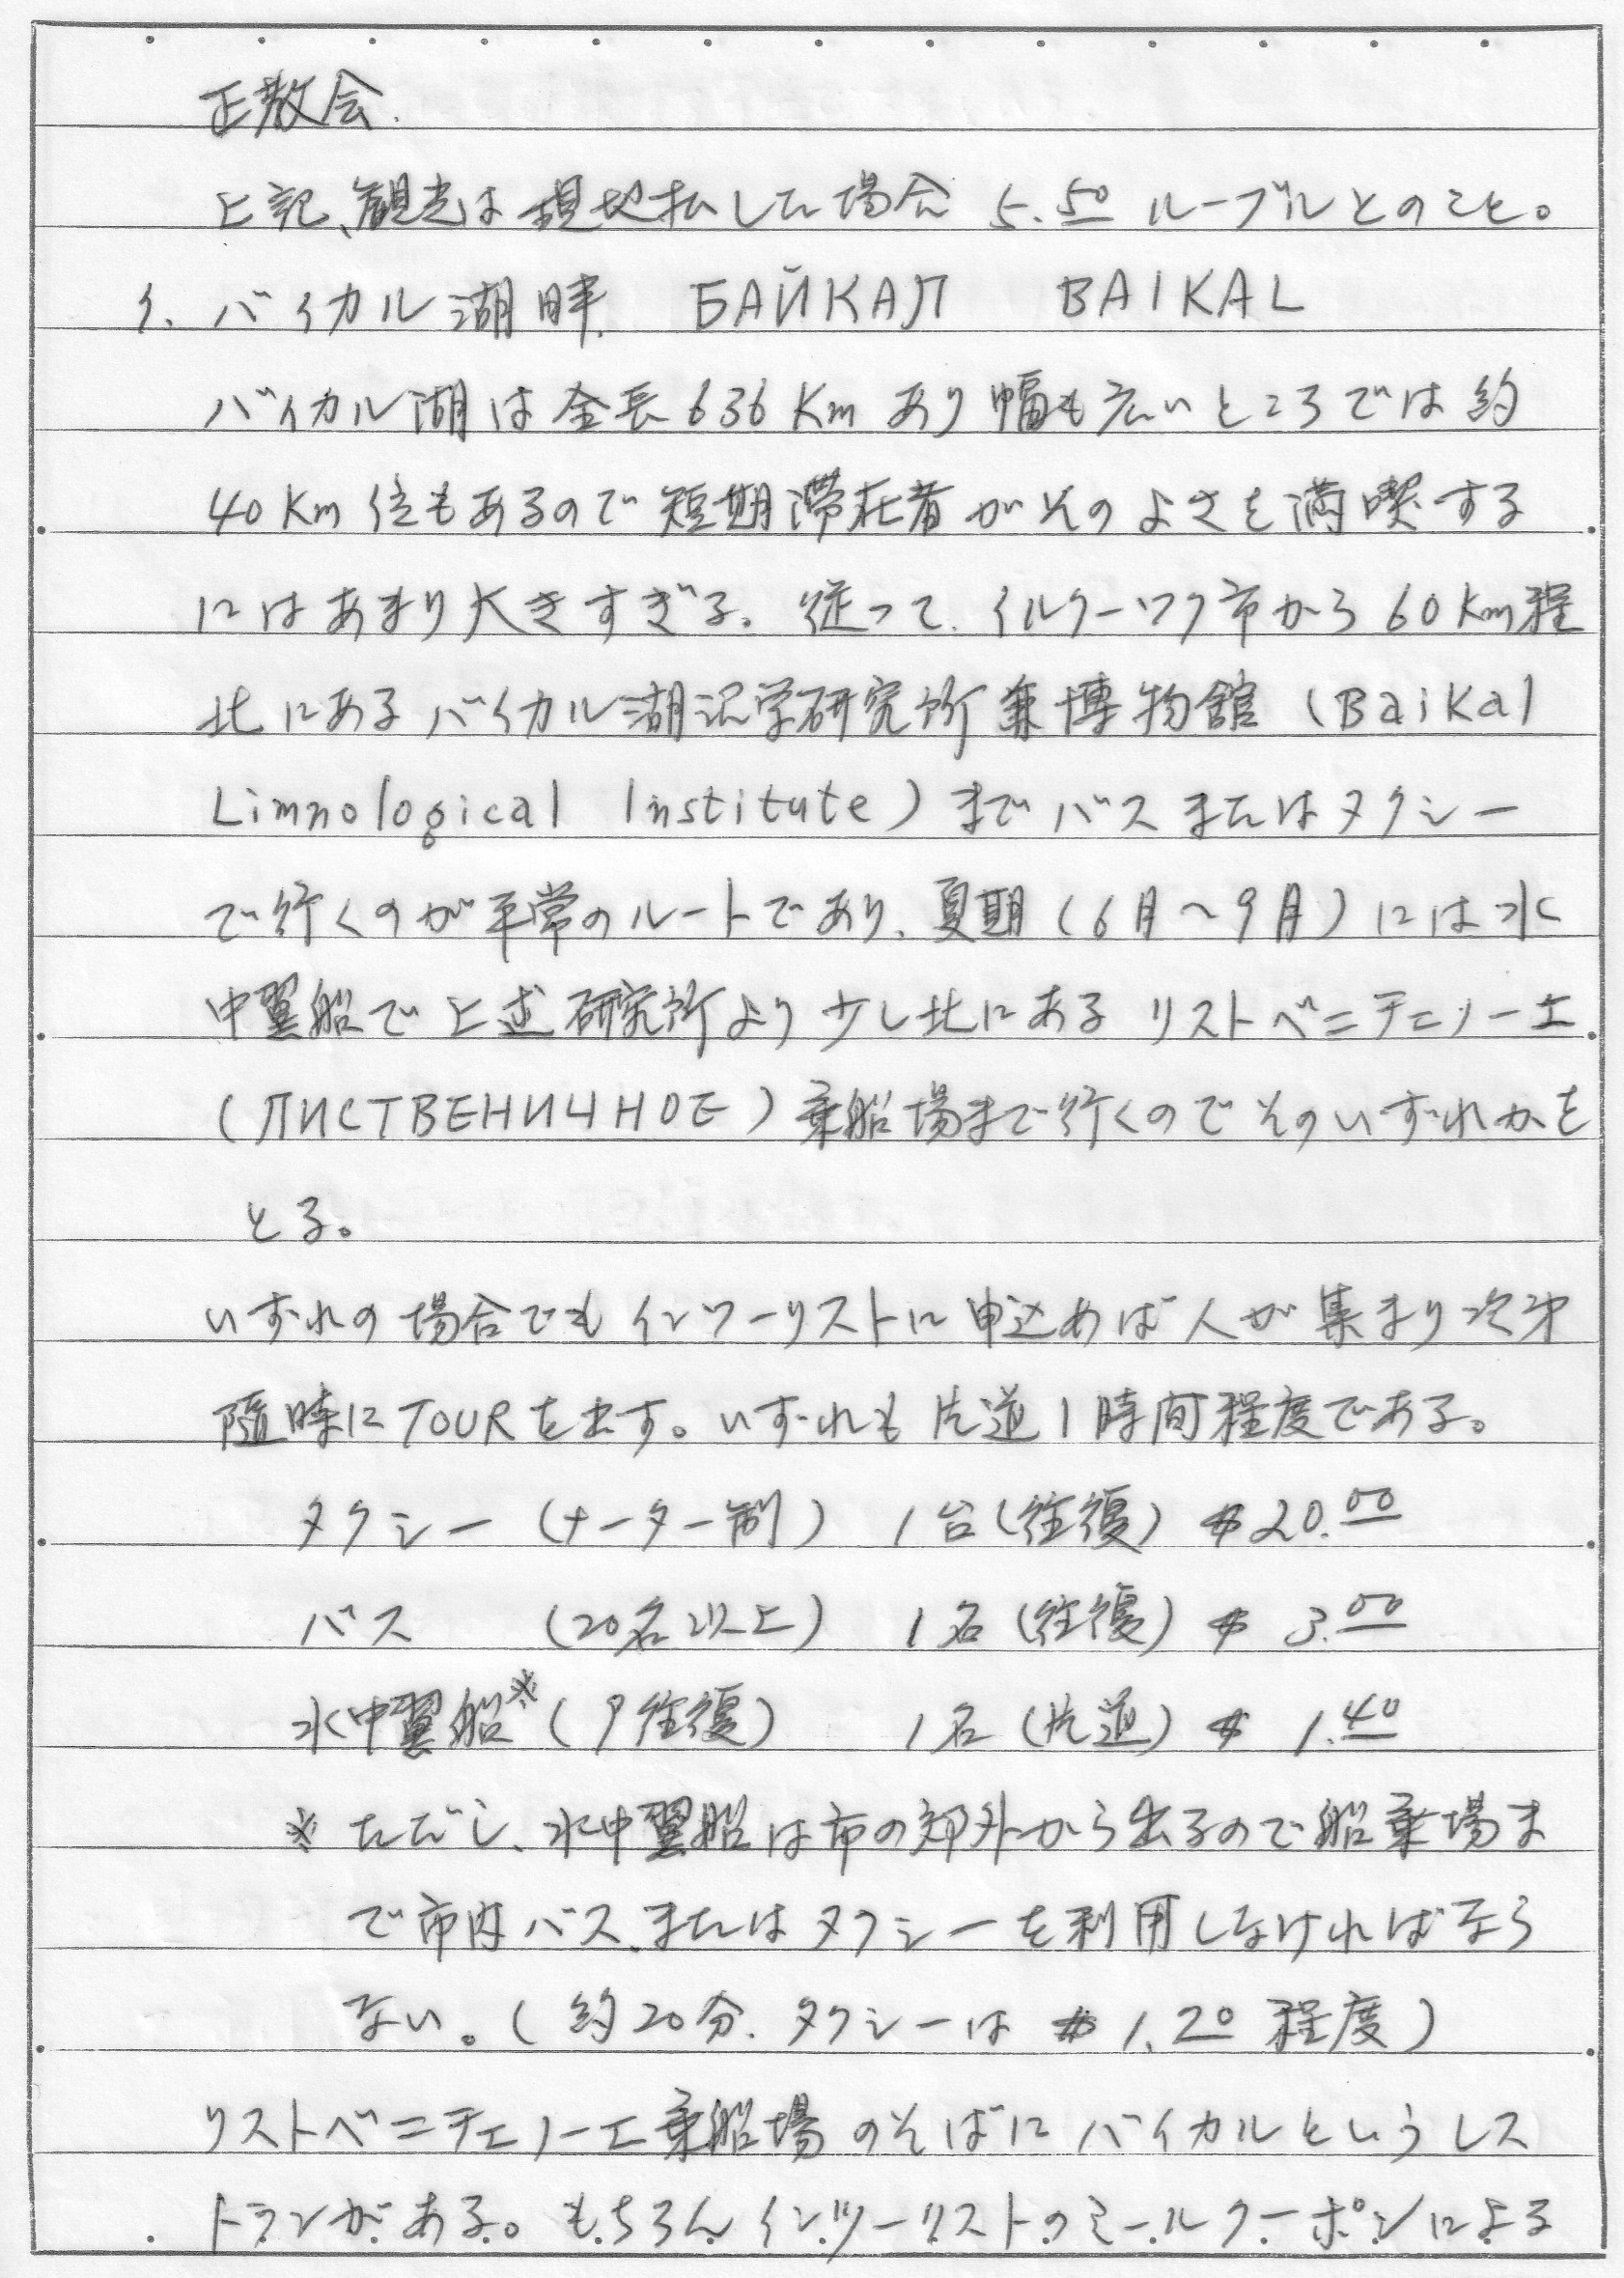 正教会.
上記、観光は現地払した場合 5.50 ルーブルとのこと。
イ. バイカル湖畔. БАЙКАЛ BAIKAL
バイカル湖は全長636Kmあり幅も広いところでは約
40Km位もあるので短期滞在者がそのよさを満喫する
にはあまり大きすぎる。従って、イルクーツク市から60Km程
北にあるバイカル湖沼学研究所兼博物館(Baikal
Limnological Institute)までバスまたはタクシー
で行くのが平常のルートであり、夏期(6月～9月)には水
中翼船で上述研究所より少し北にあるリストベニチェノーエ
(ЛИСТВЕНИЧНОЕ)乗船場まで行くのでそのいずれかを
とる。
いずれの場合でもインツーリストに申込めば人が集まり次才
随時にTOURを出す。いずれも片道1時間程度である。
タクシー (メーター制) 1台(往復) $20.00
バス (20名以上) 1名(往復) $ 3.00
水中翼船※(9往復) 1名(片道) $ 1.40
※ ただし、水中翼船は市の郊外から出るので船乗場ま
で市内バス、またはタクシーを利用しなければなら
ない。(約20分、タクシーは $1.20 程度)
リストベニチェノーエ乗船場のそばにバイカルというレス
トランがある。もちろんインツーリストのミールクーポンによる